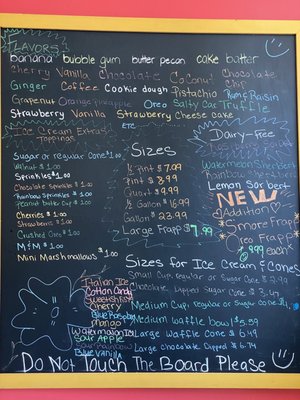 FLAVORS
banana bubble gum butter pecan cake butter
Cherry Vanilla Chocolate Coconut Chocolate Chip
Ginger Coffee Cookie dough Pistachio Rum & Raisin
Grapenut Orange Pineapple Oreo Salty Car Truffle
Strawberry Vanilla Strawberry Cheese cake
ETC.
Ice Cream Extras
Toppings
Sugar or Regular Cone $1.00
Walnut $ 1.00
Sprinkles $1.00
Chocolate Sprinkles $ 1.00
Rainbow Sprinkles $ 1.00
Peanut butter Cup $ 1.00
Cherries $ 1.00
Strawberries $ 1.00
Crushed Oreo $ 1.00
M&M $ 1.00
Mini Marshmallows $ 1.00
Sizes
1/2 Pint $ 7.99
1/2 Gallon $ 16.99
Gallon $ 23.99
Large Frapp $ 7.99
Dairy-Free
Watermelon Sherbert
Rainbow Sherbert
Lemon Sorbert
NEW
Addition
Smore Frapp
Oreo Frapp
$ 9.99 each
Sizes for Ice Cream & Cones
Small Cup, Regular or Sugar Cone
Chocolate Dipped Sugar Cone
Medium Cup, Regular or Sugar Cone
Medium Waffle bowl $ 5.59
Large Waffle Cone $ 6.49
Large Chocolate Dipped
Italian Ice
Cotton Candy
Swedish Fish
Cherry
Blue Raspberry
Mango
Watermelon
Sour Apple
Sour Rainbow
Blue Vanilla
Do Not Touch The Board Please